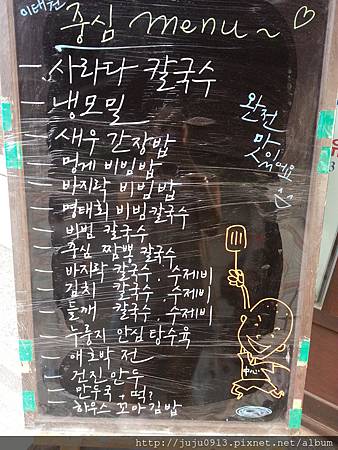 이태원
중심 menu ~
사라다 칼국수
냉모밀
완전
맛
있어요
새우 간장밥
멍게 비빔밥
바지락 비빔밥
명태회 비빔칼국수
비빔 칼국수
중심 짬뽕 칼국수
바지락 칼국수, 수제비
김치 칼국수, 수제비
들깨 칼국수, 수제비
누룽지 안심 탕수육
애호박 전
전진만두
만두국, 떡?
하우스 꼬마김밥
中心
http://juju0913.pixnet.net/album